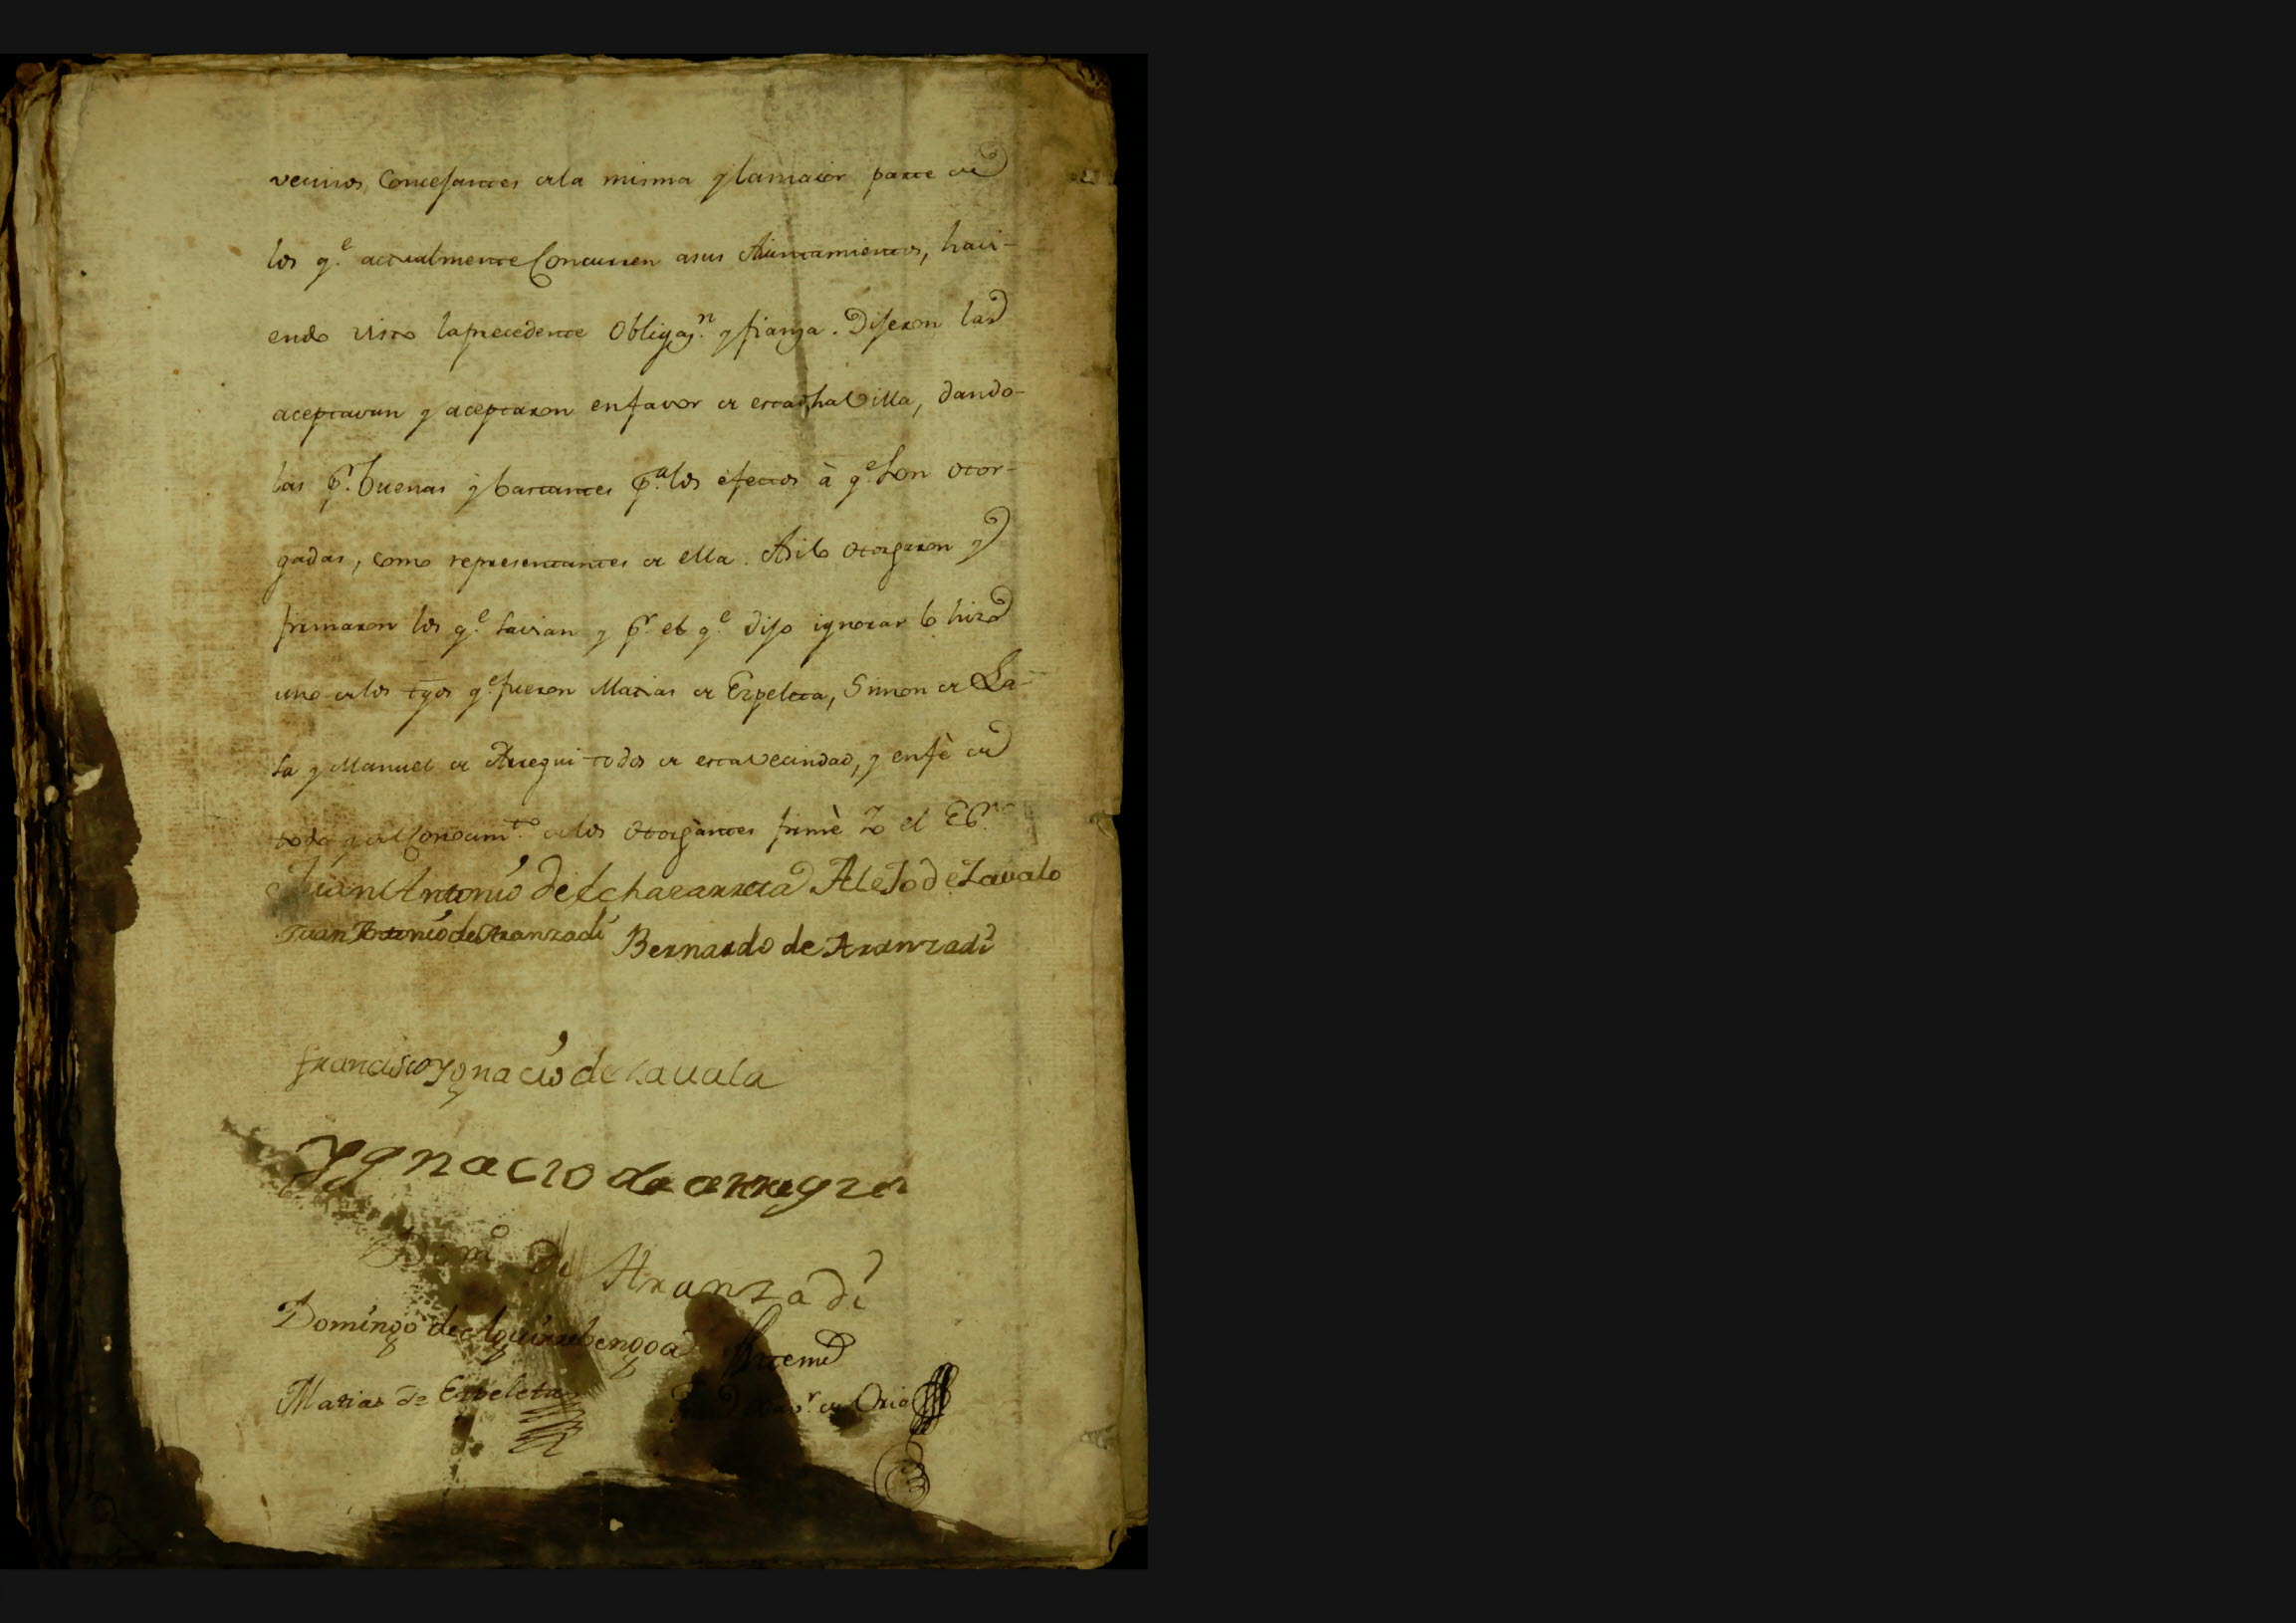 vecinos Concejantes de la misma y la maior parte de
los q.e actualmente Concurren a sus Aiuntamientos, havi-
endo visto la precedente Obligaz.n y fianza. Dijeron las
aceptavan y aceptaron en favor de esta dha Villa, dando-
las p.r buenas y bastantes p.a los efectos à q.e son otor-
gadas, como representantes de ella. Asi lo otorgaron y
firmaron los q.e savian y p.r el q.e dijo ignorar lo hizo
uno de los tgos q.e fueron Matias de Ezpeleta, Simon de La-
sa y Manuel de Arregui todos de esta vecindad, y en fè de
todo y del Conocim.to de los Otorgàntes firmè Yo el Es.no
Juan Antonio de Echaearreta Alejo de Zavalo
Juan Antonio de Aranzadi Bernardo de Aranzadi
francisco Ygnacio de Lavala
Ygnacio de arregi
Dom.o de Aranzadi
Domingo de Aguirrebengoa Antemi
Matias de Ezpeleta Xav.r de Oria